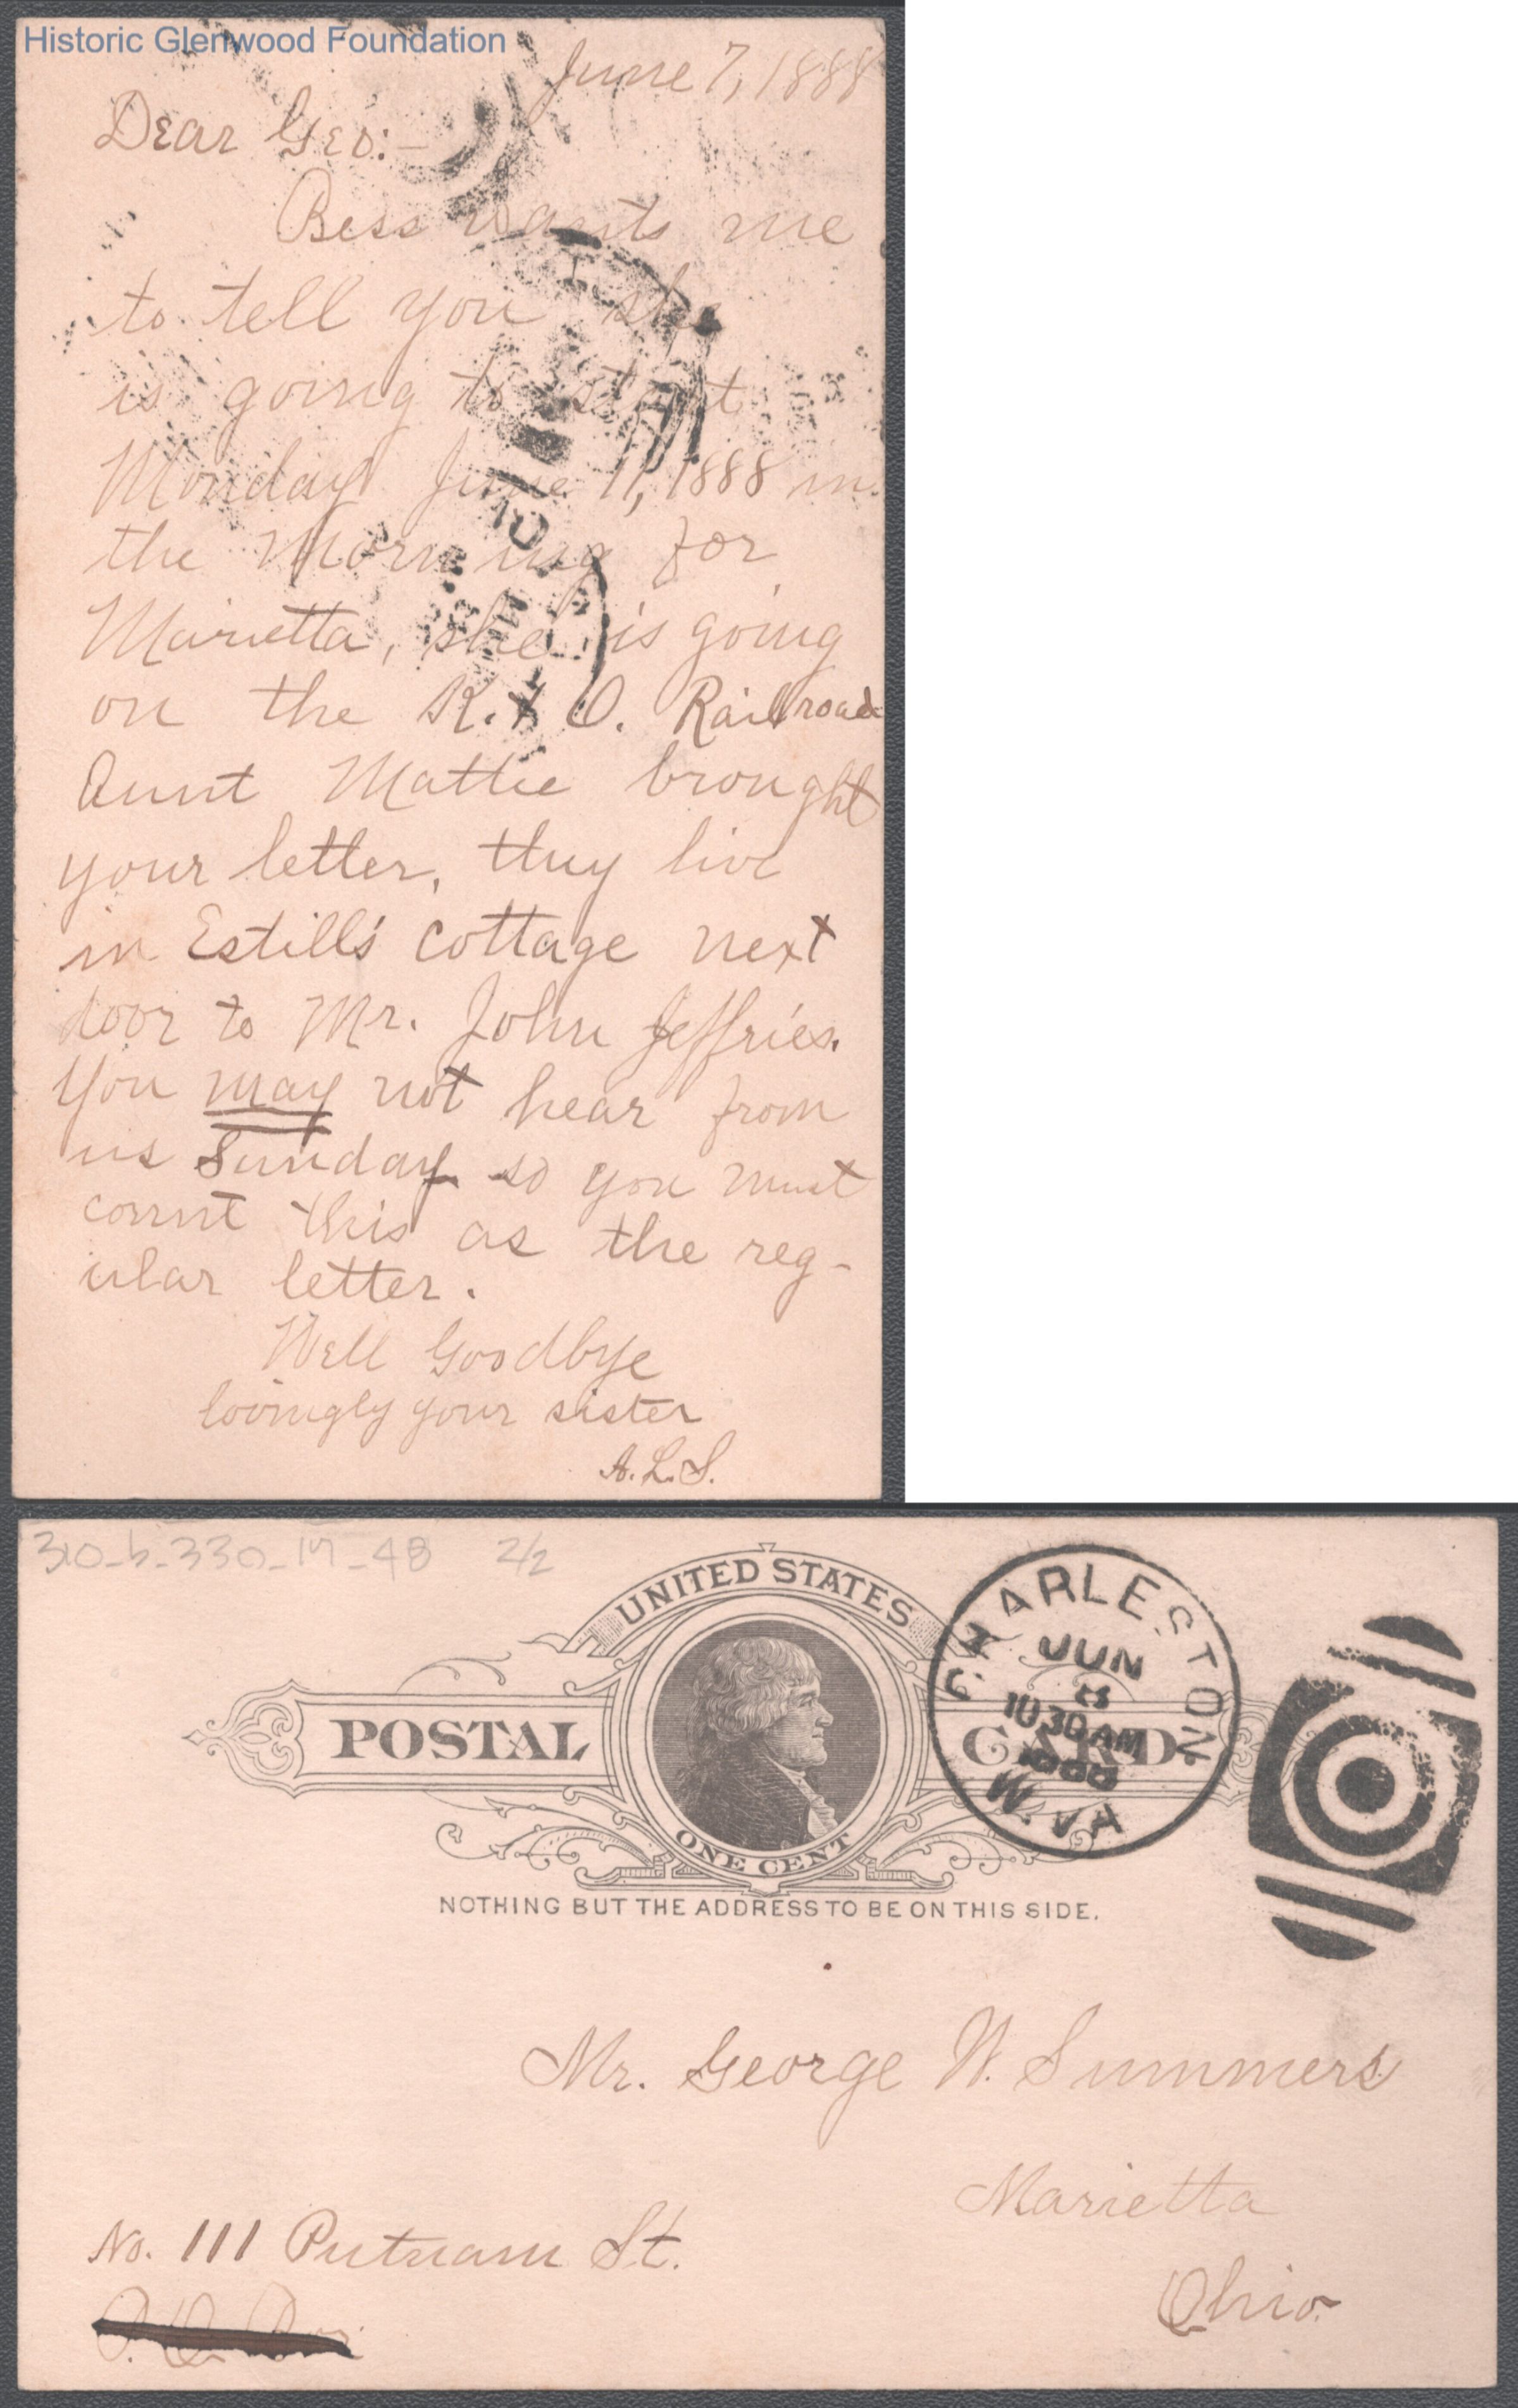 Historic Glenwood Foundation
June 7, 1888
Dear Geo:-
Bess wants me
to tell you she
is going to start
Monday June 11, 1888 in
the Morning for
Marietta, she is going
on the K. & O. Railroad
Aunt Mattie brought
your letter, they live
in Estill's cottage next
door to Mr. John Jeffries.
You may not hear from
us Sunday so you must
count this as the reg-
ular letter.
Well Goodbye
lovingly your sister
A.L.S.
310-b-330-17-48 2/2
UNITED STATES
POSTAL CARD
ONE CENT
NOTHING BUT THE ADDRESS TO BE ON THIS SIDE.
CHARLESTON
JUN
8
10 30 AM
1888
W. VA
Mr. George W. Summers
Marietta
No. 111 Putnam St.
Ohio.
P. O. Box